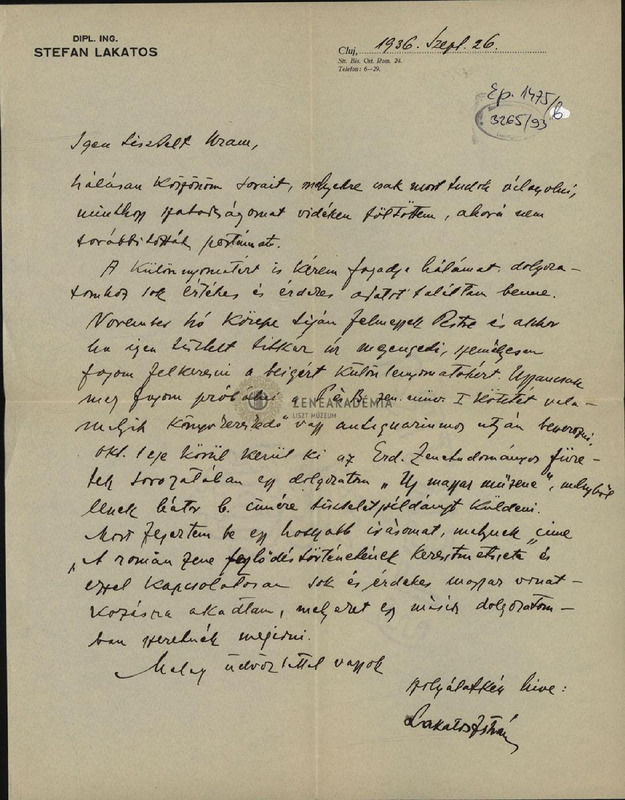 DIPL. ING.
STEFAN LAKATOS
Cluj, 1936. Szept. 26.
Str. Bis. Ort. Rom. 24.
Telefon: 6—29.
Ep. 1475/6
3265/93
Igen tisztelt Uram,
hálásan köszönöm sorait, melyekre csak most tudok válaszolni,
minthogy szabadságomat vidéken töltöttem, ahová nem
továbbították postámat.
A különnyomatért is kérem fogadja hálámat. dolgoza-
tomhoz sok értékes és érdekes adatot találtam benne.
November hó közepe táján felmegyek Pestre és akkor
ha igen tisztelt titkár úr megengedi, személyesen
fogom felkeresni a beigért különlenyomatokért. Ugyancsak
meg fogom próbálni a I kötetét vala-
melyik könyvkereskedő vagy antiquarimus utján beszerezni.
Okt. 1eje körül kerül ki az Erd. Zenetudományos füze-
tek sorozatában egy dolgozatom „Uj magyar műzene", melyből
leszek bátor b. címére tiszteletpéldányt küldeni.
Most fejeztem be egy hosszabb írásomat, melynek címe
„A román zene fejlődéstörténetének keresztmetszete és
ezzel kapcsolatosan sok és érdekes magyar vonat-
kozásra akadtam, melyeket egy másik dolgozatom-
ban szeretnék megírni.
Meleg üdvözlettel vagyok
szolgálatkész híve:
Lakatos István
ZENEAKADÉMIA
LISZT MÚZEUM